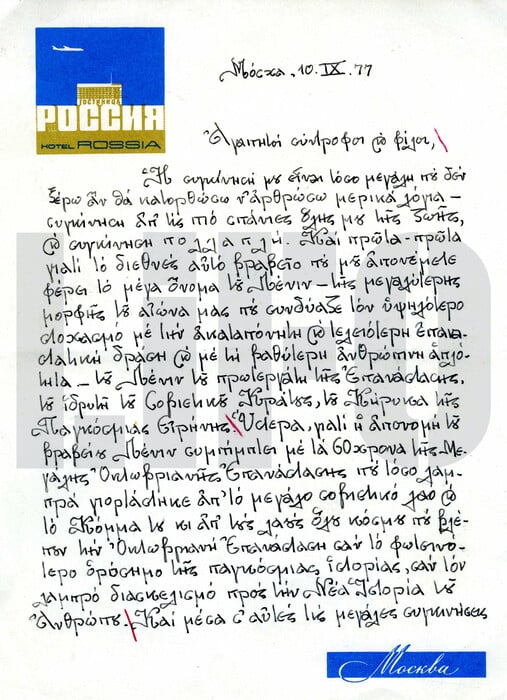 РОССИЯ
ГОСТИНИЦА
HOTEL ROSSIA
Μόσχα, 10.IX.77
Ἀγαπητοί σύντροφοι ϗ φίλοι,
Ἡ συγκίνησή μου εἶναι τόσο μεγάλη πού δέν
ξέρω ἄν θά κατορθώσω ν' ἀρθρώσω μερικά λόγια –
συγκίνηση ἀπ' τίς πιό σπάνιες ὅλης μου τῆς ζωῆς,
ϗ συγκίνηση πολλαπλή. Καί πρῶτα-πρῶτα
γιατί τό διεθνές αὐτό βραβεῖο πού μου ἀπονέμετε
φέρει τό μέγα ὄνομα τοῦ Λένιν – τῆς μεγαλύτερης
μορφῆς τοῦ αἰώνα μας πού συνδύαζε τόν ὑψηλότερο
στοχασμό μέ τήν ἀκαταπόνητη ϗ τελειότερη ἐπανα-
στατική δράση ϗ μέ τή βαθύτερη ἀνθρώπινη ἁπλό-
τητα – τοῦ Λένιν τοῦ πρωτεργάτη τῆς Ἐπανάστασης,
τοῦ ἱδρυτῆ τοῦ Σοβιετικοῦ Κράτους, τοῦ Κήρυκα τῆς
Παγκόσμιας Εἰρήνης. Ὕστερα, γιατί ἡ ἀπονομή τοῦ
βραβείου Λένιν συμπίμπτει μέ τά 60χρονα τῆς Με-
γάλης Ὀκτωβριανῆς Ἐπανάστασης πού τόσο λαμ-
πρά γιορτάστηκε ἀπ' τό μεγάλο σοβιετικό λαό ϗ
τό Κόμμα του κι ἀπ' τούς λαούς ὅλου κόσμου πού βλέ-
πουν τήν Ὀκτωβριανή Ἐπανάσταση σάν τό φωτεινό-
τερο ὁρόσημο τῆς παγκόσμιας ἱστορίας, σάν τόν
λαμπρό διασκελισμό πρός τήν Νέα Ἱστορία τοῦ
Ἀνθρώπου. Καί μέσα σ' αὐτές τίς μεγάλες συγκινήσεις
Москва